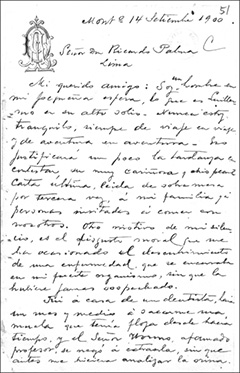 51
Montt 8 14 Setiembre 1900.
Señor Don Ricardo Palma C
Lima
Mi querido amigo: Soy un hombre en
mi pequeña esfera, lo que es Guiller-
mo en su alto solio. Nunca estoy
tranquilo, siempre de viaje en viaje
y de aventura en aventura. Eso
justificará un poco la tardanza en
contestar su muy cariñosa, y
carta última, leida de sobremesa
por tercera vez, á mi familia y á
personas invitadas á comer con
nosotros. Otro motivo de mi silen-
cio, es el disgusto moral que me
ha ocasionado el descubrimiento
de una enfermedad, que se encuentra
en mi organismo, sin que la
hubiere jamas sospechado.
Fuí á casa de un dentista, hará
un mes y medio á sacarme una
muela que tenía floja desde hacía
tiempo, y el Señor afamado
profesor, se negó á extraerla, sin que
antes me hiciera analizar la orina.